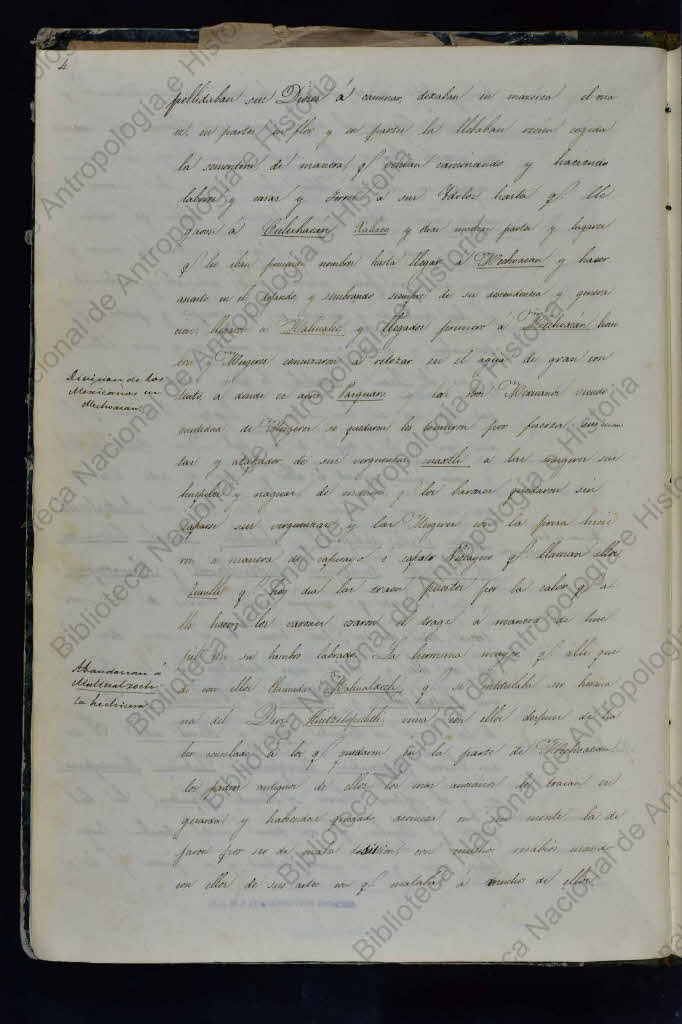 4
pellidaban sus Dioses á caminar, dexaban en mazorca el ma
iz, en partes en flor y en partes la llebaban recien cogida
la sementera de manera q.e venian caminando y haciendo
labores y casas y torres á sus Ydolos hasta q.e lle
garon á Culuhacán Xalisco y otras muchas partes y lugares
q.e les iban poniendo nombres hasta llegar á Mechoacan y hacer
asiento en el dejando y sembrando siempre de su descendencia y genera
cion: llegaron á Malinalco y llegados primero á Mechoacán hom
bres y Mugeres comenzaron á retozar en el agua de gran con
tento, a donde es aora Pasquaro y los otros Mexicanos viendo
cantidad de Mugeres se quedaron les tomaron por fuerza sus man
tas y atapador de sus verguenzas maxtli á las mugeres sus
huipiles y naguas de manera q.e los barones quedaron sin
taparse sus verguenzas y las Mugeres con la priesa hicie
ron a manera de capisayo ó capote Viscayno q.e llaman ellos
q.e hoy dia las traen puestos por la calor q.e a
lli hace, los varones usaron el trage á manera de hue
pil con su hombro labrado. La hermana mayor q.e alli que
dó con ellos llamada Malinalxoch, q.e se intitulaba ser herma
na del Dios Huitzilopochtli, venia con ellos despues de ha
ber consolado á los q.e quedaron en la parte de Mechoacan
los padres antiguos de ellos los mas ancianos los traian en
guarda y habiendose quedado dormida en un monte la de
jaron por ser de mala disistion, con muchos resabios, usando
con ellos de sus artes con q.e mataba á muchos de ellos
Division de los
Mexicanos en
Mechoacan.
Abandonan á
Malinalxoch
la hechicera
Biblioteca Nacional de Antropología e Historia